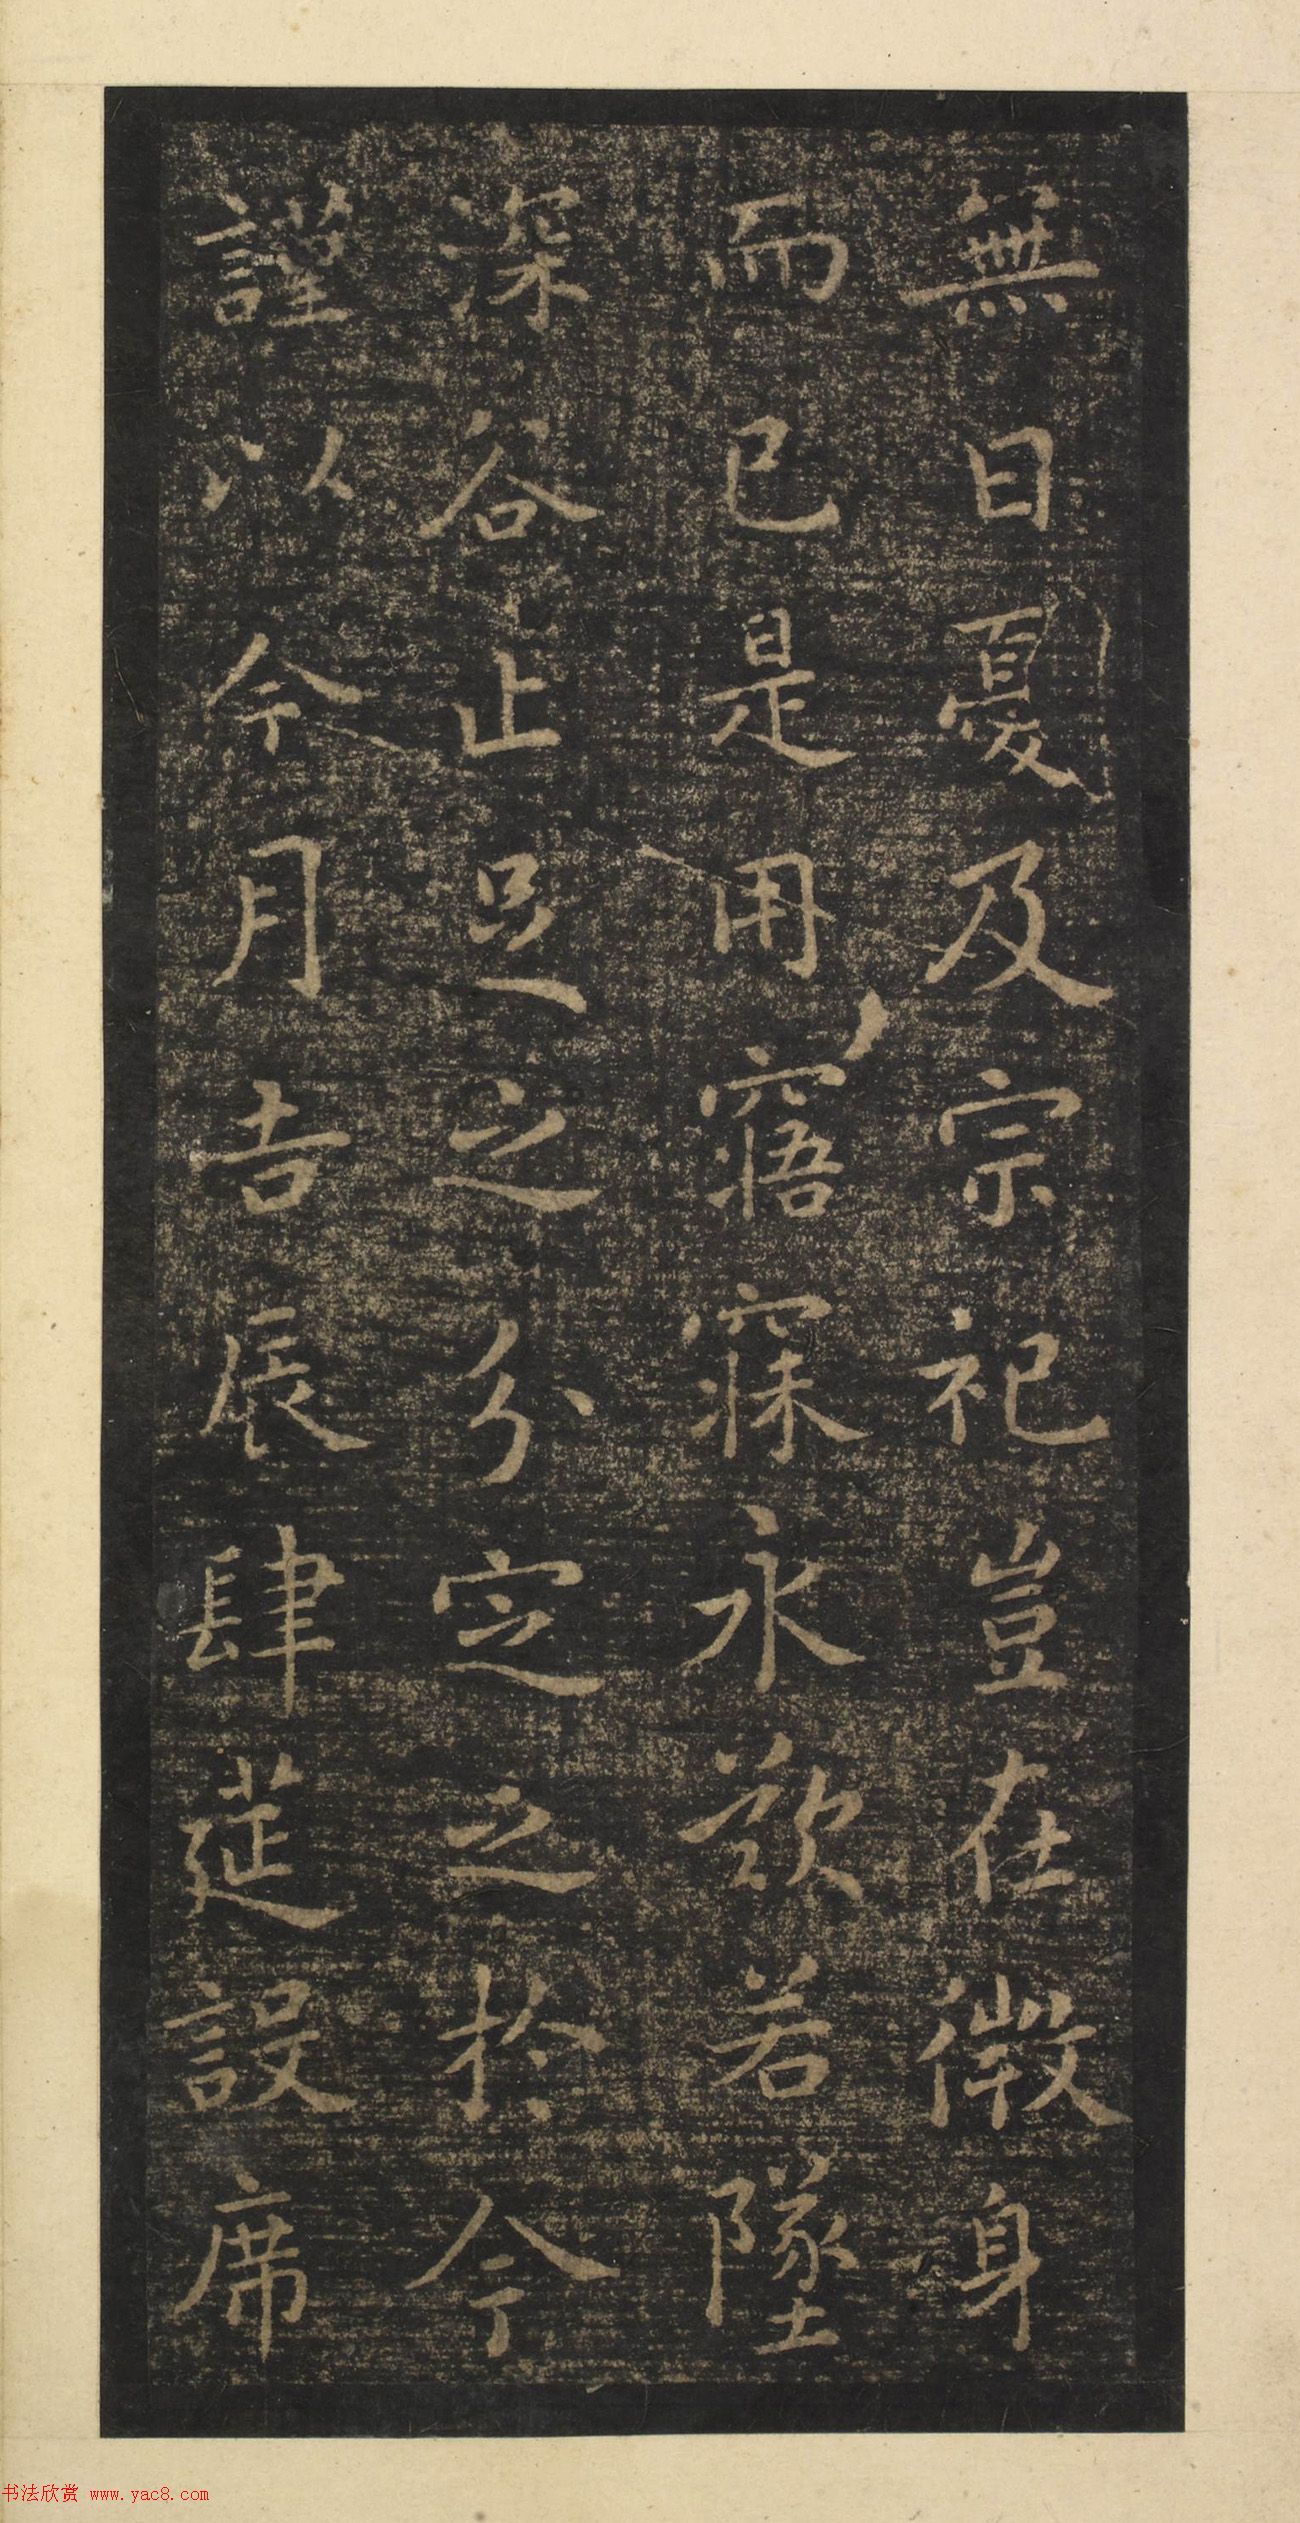 無日憂及宗祀豈在微身
而已是用寤寐永歎若墜
深谷止足之分定之於今
謹以今月吉辰肆莚設席
书法欣赏 www.yac8.com